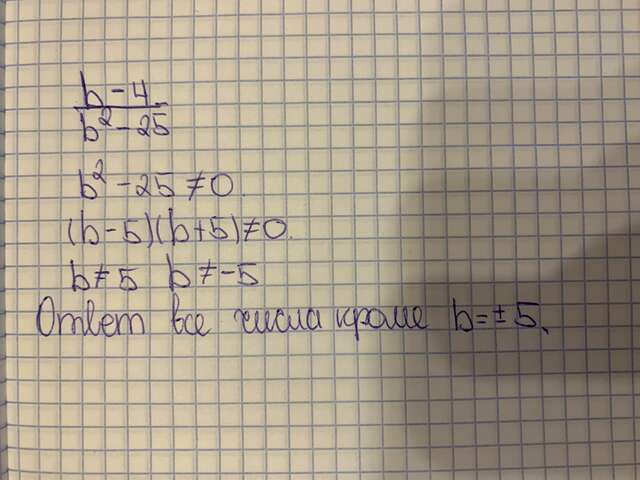 b-4
b²-25
b²-25≠0.
(b-5)(b+5)≠0.
b≠5 b≠-5
Ответ все числа кроме b=±5.